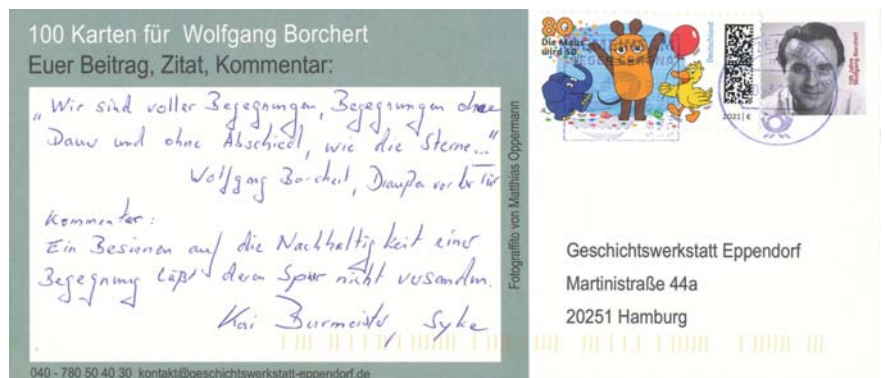 100 Karten für Wolfgang Borchert
Euer Beitrag, Zitat, Kommentar:
„Wir sind voller Begegnungen, Begegnungen ohne
Dauer und ohne Abschied, wie die Sterne..."
Wolfgang Borchert, Draußen vor der Tür
Kommentar:
Ein Besinnen auf die Nachhaltigkeit einer
Begegnung läßt deren Spur nicht versanden.
Kai Burmeister, Syke
040 - 780 50 40 30 kontakt@geschichtswerkstatt-eppendorf.de
Fotograffito von Matthias Oppermann
80
Die Maus
wird 50
Deutschland
2021 | €
100 Jahre
Wolfgang Borchert
Geschichtswerkstatt Eppendorf
Martinistraße 44a
20251 Hamburg